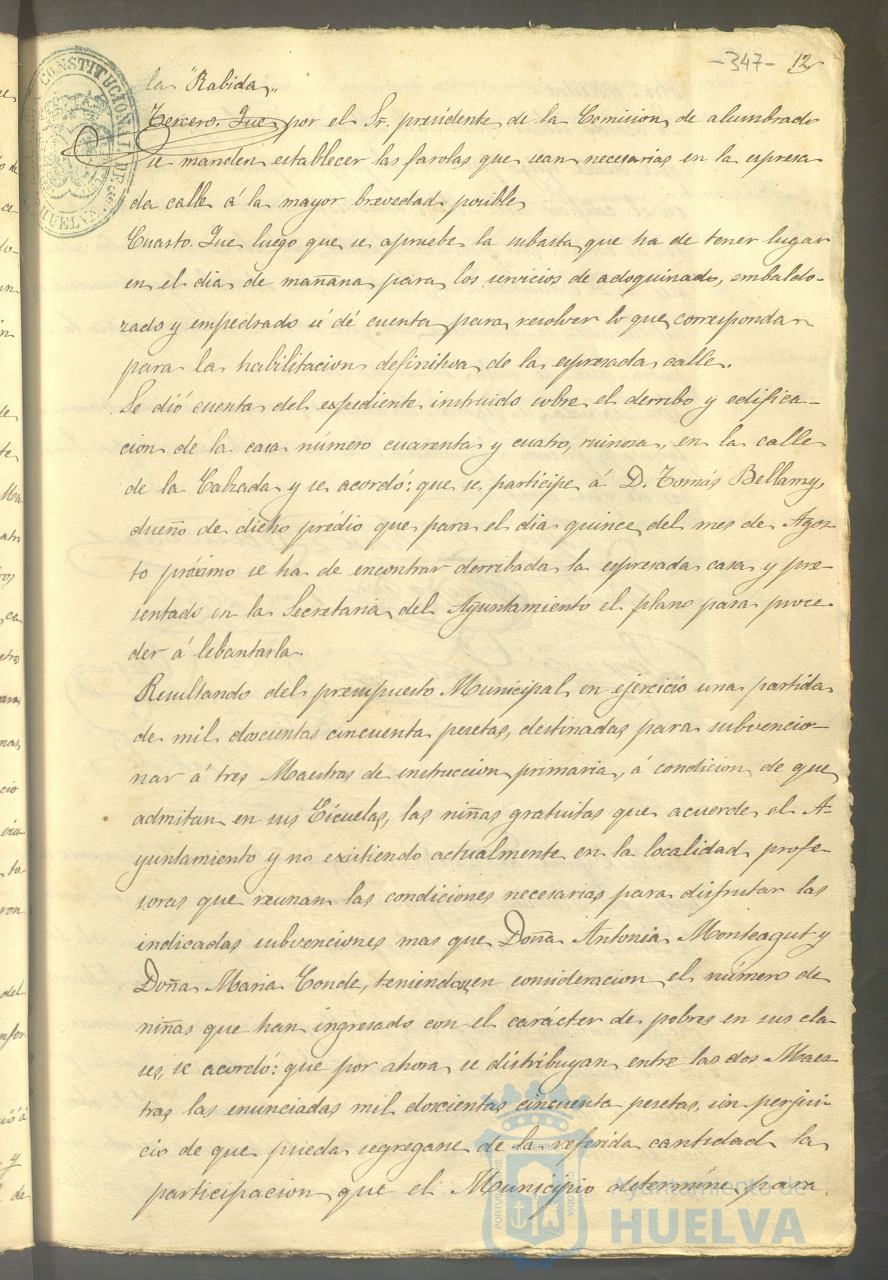 -347- 12
CONSTITUCIONAL DE
HUELVA
la "Rabida„
Tercero. Que por el Sr. presidente de la Comision de alumbrado
se manden establecer las farolas que sean necesarias en la expresa
da calle á la mayor brevedad posible
Cuarto. Que luego que se apruebe la subasta que ha de tener lugar
en el dia de mañana para los servicios de adoquinado, embaldo-
zado y empedrado sé dé cuenta para resolver lo que corresponda
para la habilitacion definitiva de la expresada calle.
Se dió cuenta del expediente instruido sobre el derribo y edifica-
cion de la casa número cuarenta y cuatro, ruinosa, en la calle
de la Calzada y se acordó: que se participe á D. Tomás Bellamy,
dueño de dicho prédio que para el dia quince del mes de Agos-
to próximo se ha de encontrar derribada la expresada casa y pre-
sentado en la Secretaria del Ayuntamiento el plano para proce
der á lebantarla.
Resultando del presupuesto Municipal en ejercicio una partida
de mil doscientas cincuenta pesetas, destinadas para subvencio-
nar á tres Maestras de instruccion primaria, á condicion de que
admitan en sus Escuelas, las niñas gratuitas que acuerde el A-
yuntamiento y no existiendo actualmente en la localidad profe-
soras que reunan las condiciones necesarias para disfrutar las
indicadas subvenciones mas que Doña Antonia Monteagut y
Doña Maria Conde, teniendo en consideracion el número de
niñas que han ingresado con el carácter de pobres en sus cla-
ses, se acordó: que por ahora se distribuyan entre las dos Maes-
tras las enunciadas mil doscientas cincuenta pesetas, sin perjui-
cio de que pueda segregarse de la referida cantidad la
participacion que el Municipio determine para
Ayuntamiento de
HUELVA